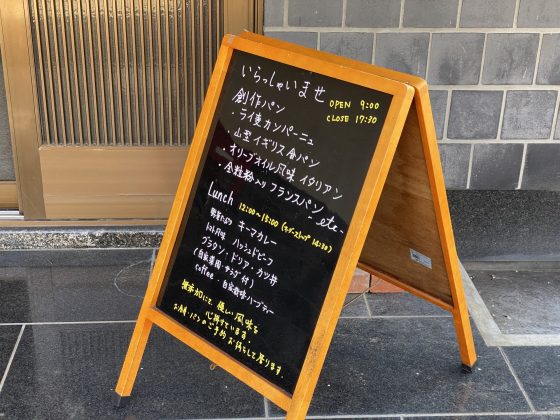 いらっしゃいませ
OPEN 9:00
CLOSE 17:30
創作パン
・ライ麦カンパーニュ
・山型イギリス食パン
・オリーブオイル風味イタリアン
・全粒粉入りフランスパン etc-
Lunch 12:00~15:00 (ラストオーダーストップ 14:30)
野菜たっぷり キーマカレー
トマト風味 ハッシュドビーフ
ブラウンドリア・カツ丼
(自家農園・サラダ付)
coffee・自家栽培ハーブティー
優しい風味を
心掛けています。
お食事、パンのご予約お待ちして居ります。